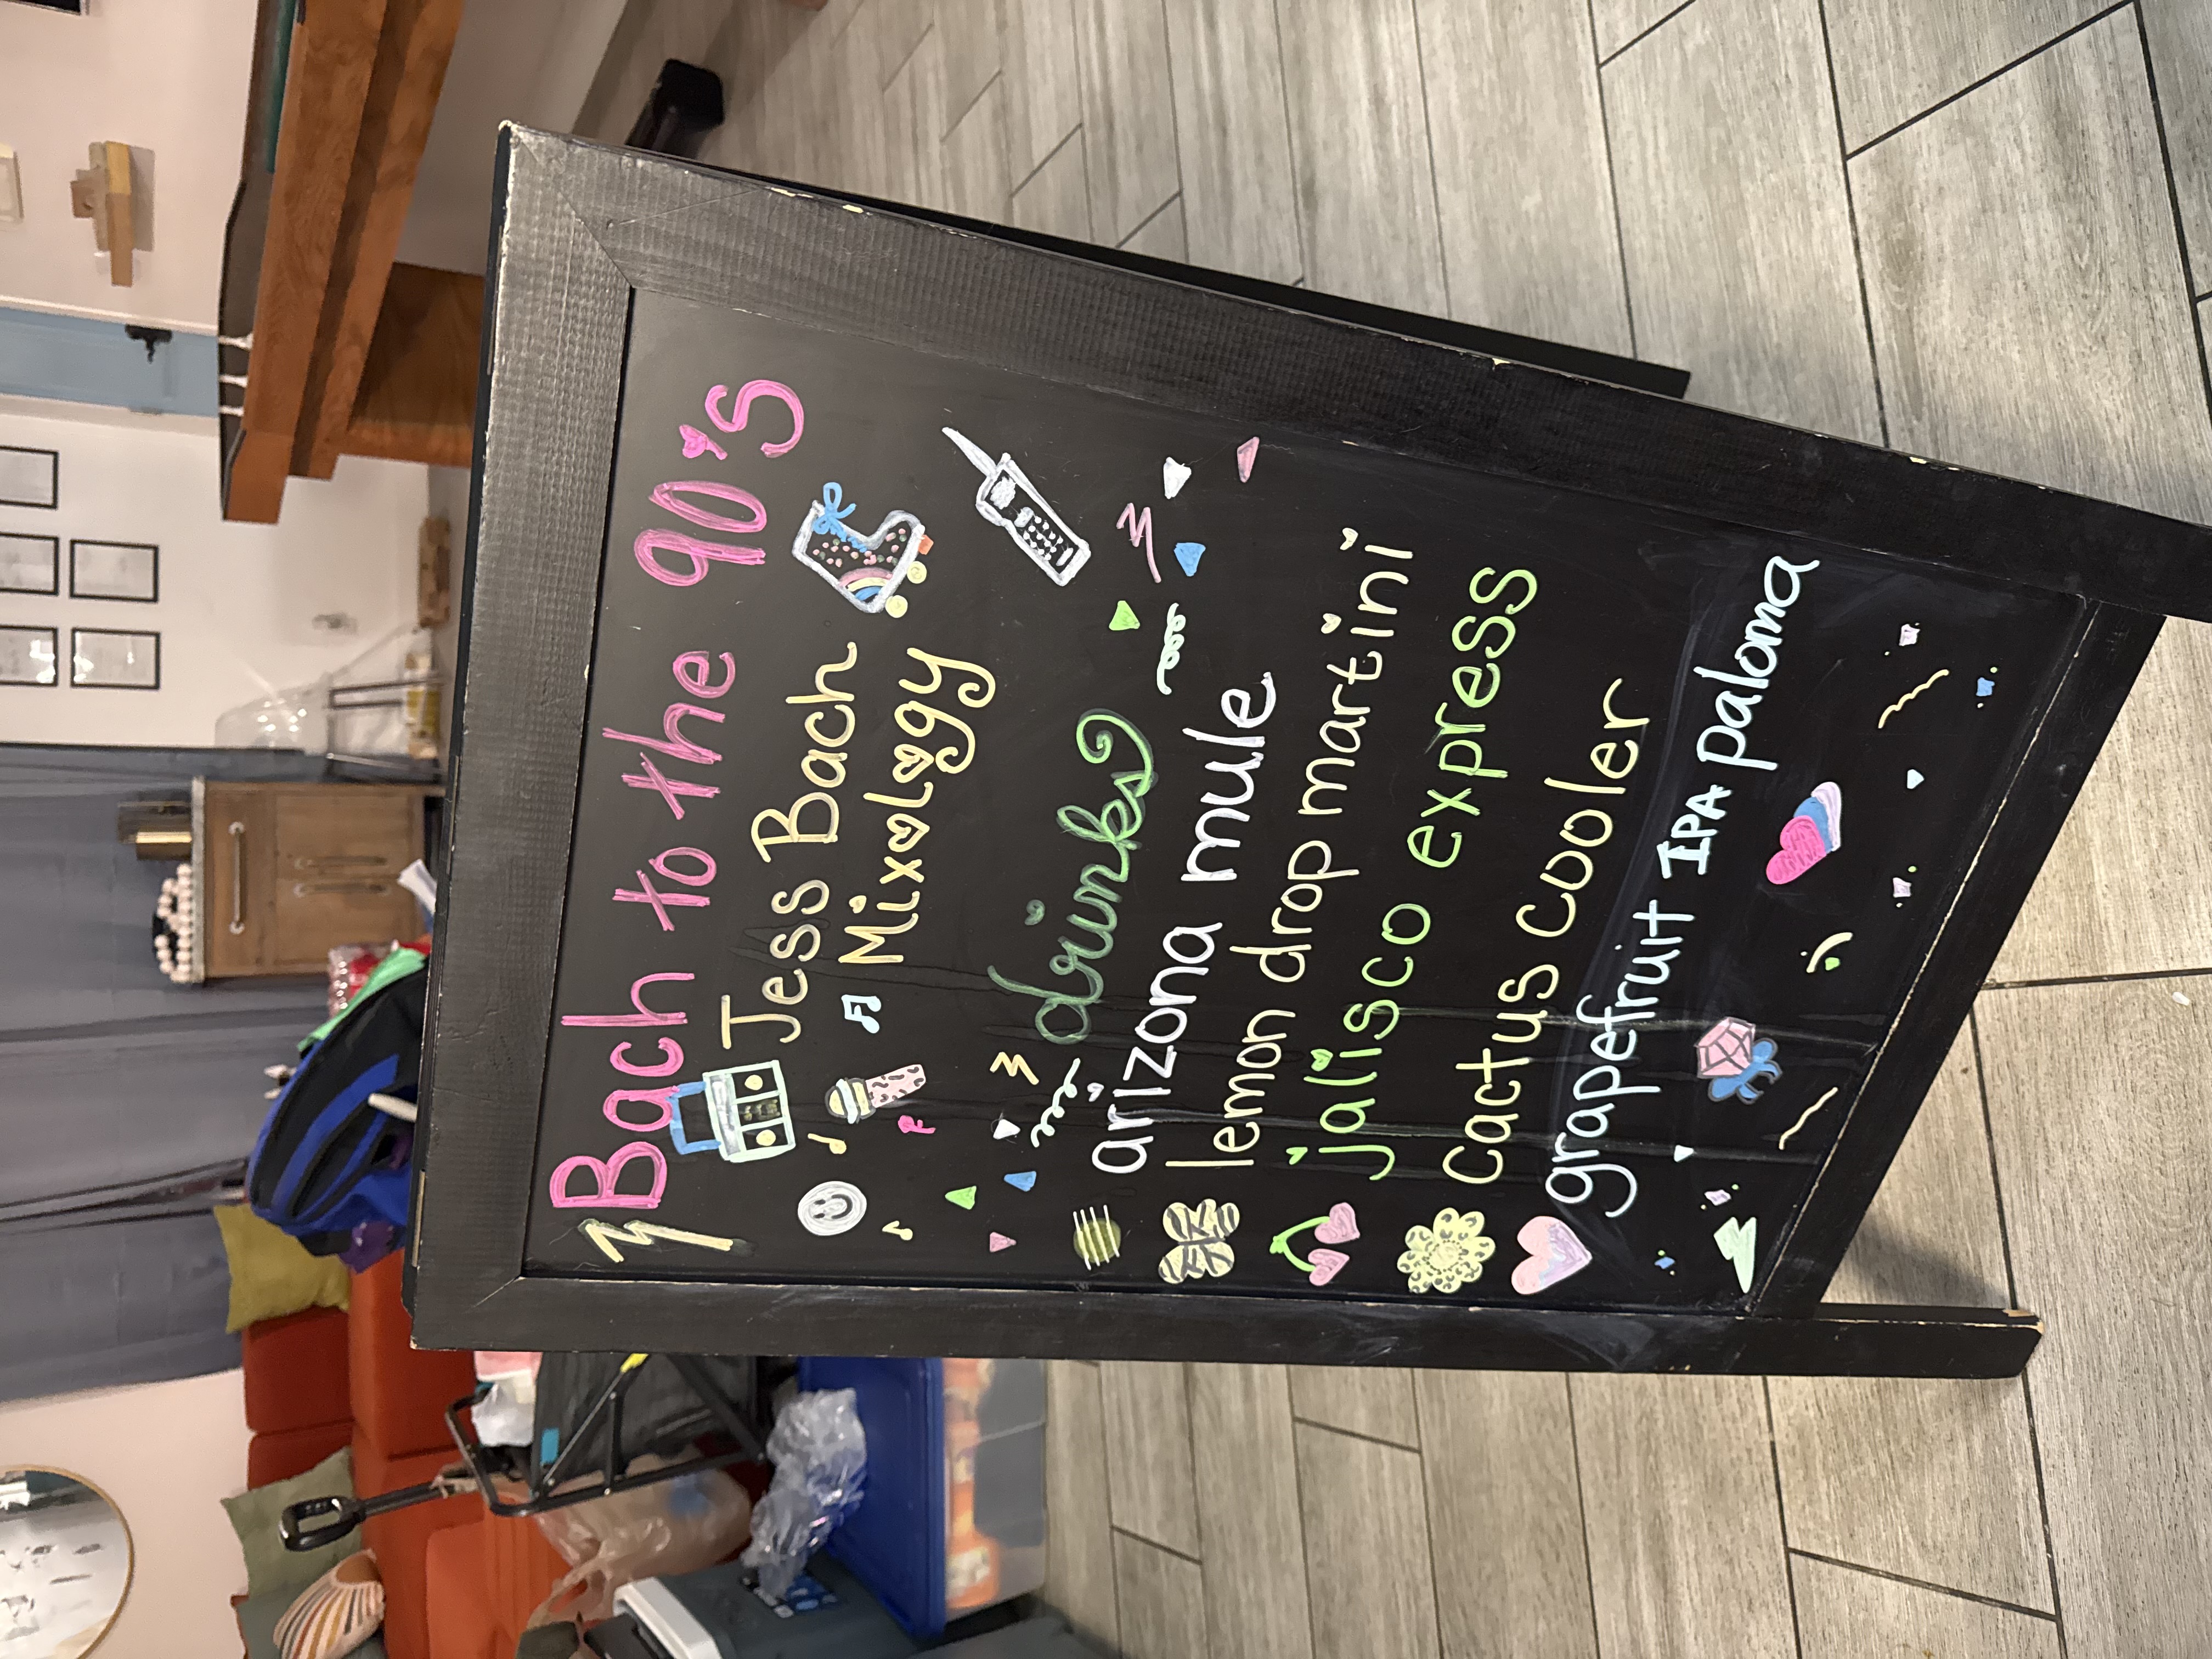 Bach to the 90's
Jess Bach
Mixology
drinks
arizona mule
lemon drop martini
jalisco express
cactus cooler
grapefruit IPA paloma